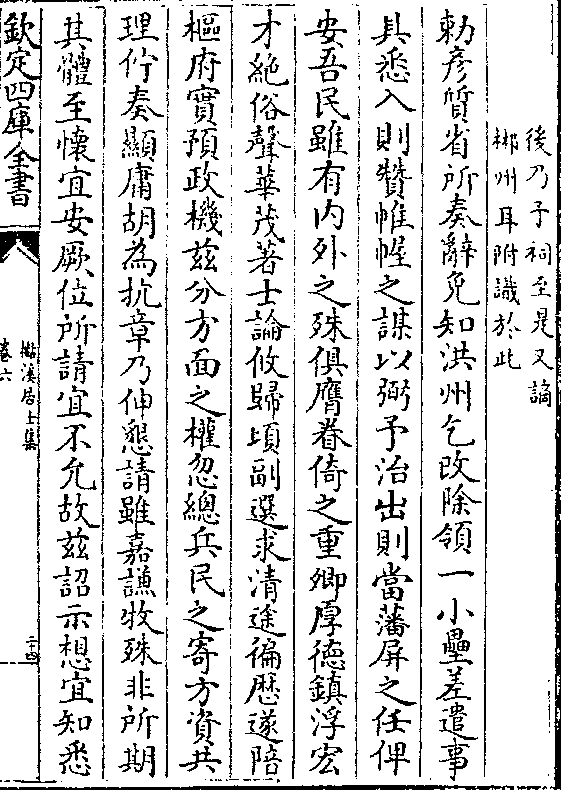 後乃予祠至是又謫
郴州耳附識於此
勅彦質省所奏辭免知洪州乞改除領一小壘差遣事
具悉入則贊帷幄之謀以弼予治出則當藩屏之任俾
安吾民雖有内外之殊俱膺眷倚之重卿厚徳鎮浮宏
才絶俗聲華茂著士論攸歸頃副選求清途徧歴遂陪
樞府實預政機兹分方面之權忽總兵民之寄方資共
理佇奏顯庸胡為抗章乃伸懇請雖嘉謙牧殊非所期
其體至懷宜安厥位所請宜不允故兹詔示想宜知悉
欽定四庫全書
卷六
二十四